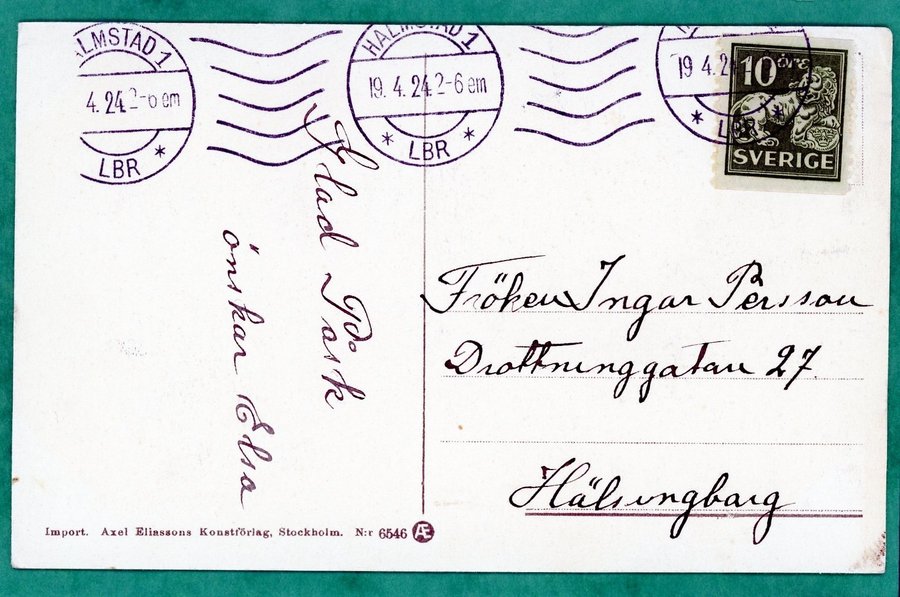 HALMSTAD 1
4. 24. 2-6 em
* LBR *
HALMSTAD 1
19. 4. 24. 2-6 em
* LBR *
19 4. 24
* LBR *
10 öre
SVERIGE
Glad Påsk
önskar Elsa
Fröken Ingar Persson
Drottninggatan 27.
Hälsingbarg
Import. Axel Eliassons Konstförlag, Stockholm. N:r 6546 Æ